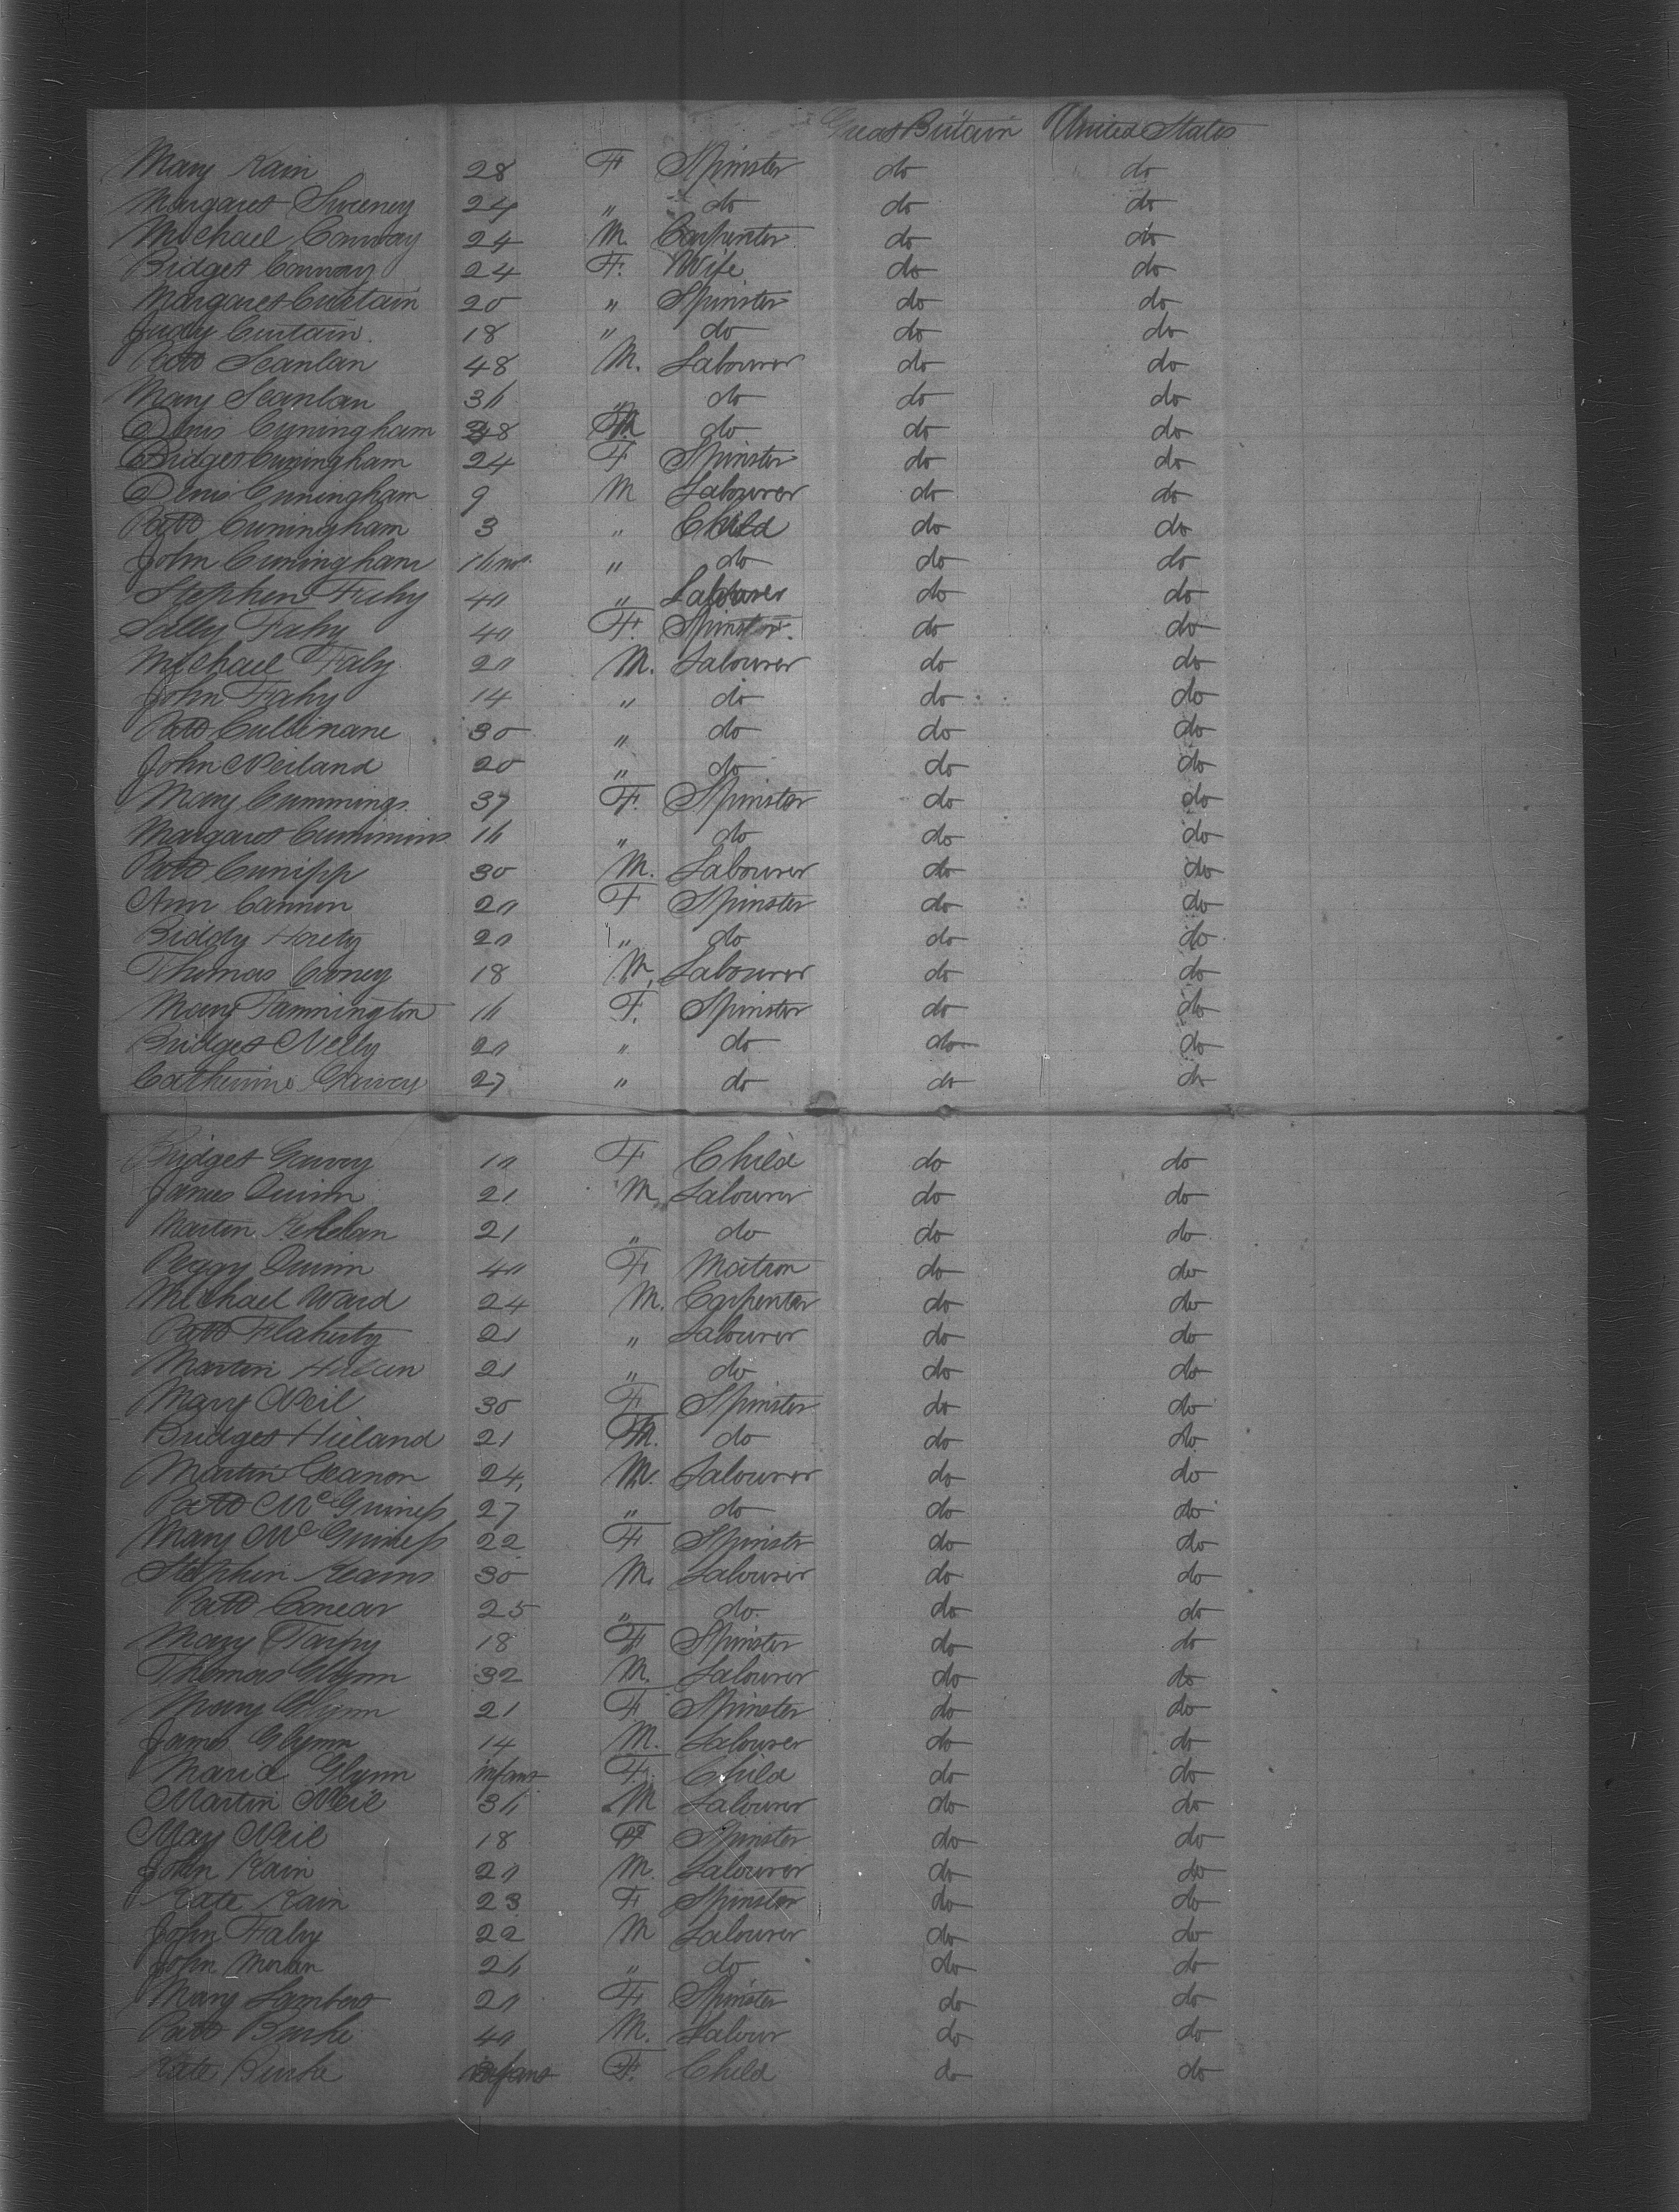 Great Britain United States
Mary Kain 28 F Spinster do do
Margaret Sweeney 24 " do do do
Michael Conway 24 M. Carpenter do do
Bidget Conway 24 F. Wife do do
Margaret Curtain 20 " Spinster do do
Judy Curtain. 18 " do do do
Patt Scanlan 48 M. Labourer do do
Mary Scanlan 36 " do do do
Denis Cuningham do do do
Bridget Cuningham 24 F Spinster do do
Denis Cuningham 9 M Labourer do do
Patt Cuningham 3 " Child do do
John Cuningham " do do do
Stephen Fahy 40 " Labourer do do
Sally Fahy 40 F. Spinster. do do
Michael Fahy 20 M. Labourer do do
John Fahy 14 " do do do
Patt Cullinane 30 " do do do
John Neiland 20 " do do do
Mary Cummings. 37 F. Spinster do do
Margaret Cummins 16 " do do do
Patt Cunipp 30 M. Labourer do do
Ann Cannon 20 F Spinster do do
Biddy 20 " do do do
Thomas Coney 18 M. Labourer do do
Mary Fannington 16 F. Spinster do do
Bridget Nelly 20 " do do do
Catherine Garvey 27 " do do do
Bridget Garvey 10 F Child do do
James Quinn 21 M. Labourer do do
Martin 21 " do do do
Peggy Quinn 40 F Matron do do
Michael Ward 24 M. Carpenter do do
Patt Flaherty 21 " Labourer do do
Martin 21 " do do do
Mary Neil 30 F Spinster do do
Bridget Hieland 21 do do do
Martin Geanon 24, M. Labourer do do
Patt McGuiness 27 " do do do
Mary McGuiness 22 F Spinster do do
Stephen Keams 30 M. Labourer do do
Patt Conear 25 " do. do do
Mary Tarpy 18 F Spinster do do
Thomas Glynn 32 M. Labourer do do
Mary Glynn 21 F Spinster do do
James Glynn 14 M. Labourer do do
Maria Glynn infant F. Child do do
Martin Neil 36 M Labourer do do
May Neil 18 F Spinster do do
John Kain 20 M. Labourer do do
Kate Kain 23 F Spinster do do
John Fahy 22 M Labourer do do
John Moran 26 " do do do
Mary Lambert 20 F. Spinster do do
Patt Burke 40 M. Labour do do
Kate Burke infant F. Child do do